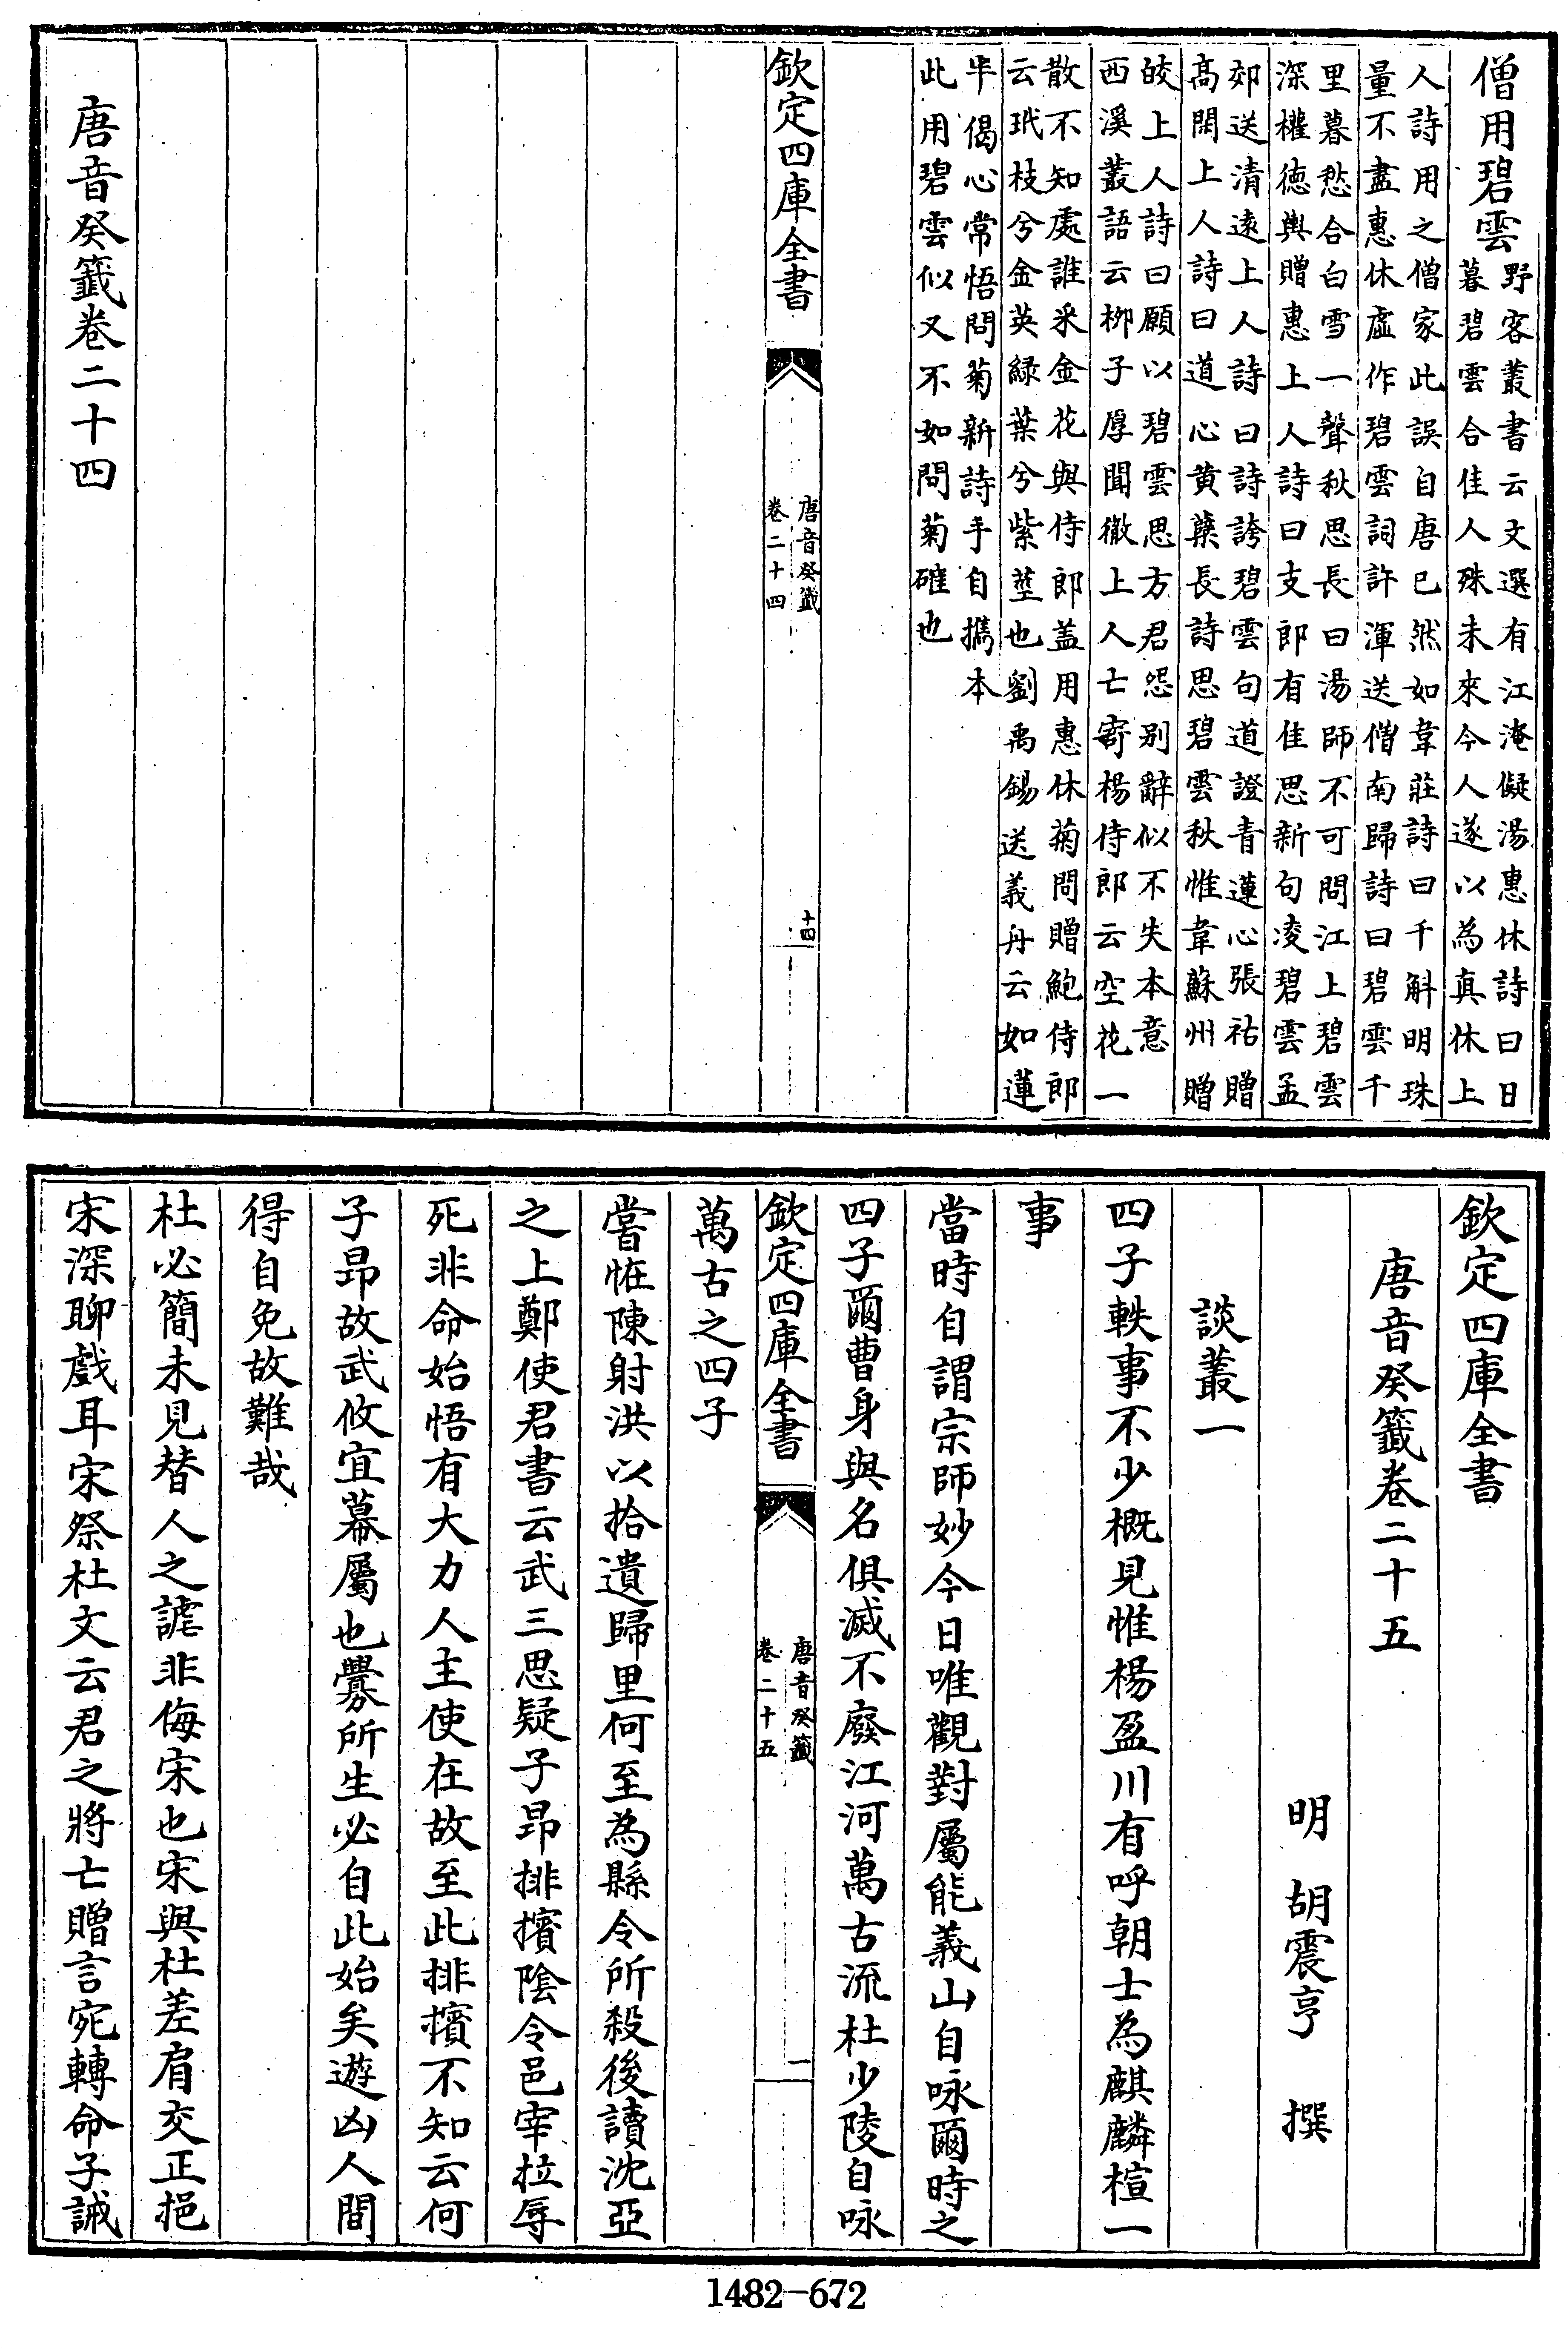 僧用碧雲
野客叢書云文選有江淹儗湯惠休詩曰日
暮碧雲合佳人殊未來今人遂以為真休上
人詩用之僧家此誤自唐已然如韋莊詩曰千斛明珠
量不盡惠休虛作碧雲詞許渾送僧南歸詩曰碧雲千
里暮愁合白雪一聲秋思長曰湯師不可問江上碧雲
深權徳輿贈惠上人詩曰支郎有佳思新句凌碧雲孟
郊送清逺上人詩曰詩誇碧雲句道證青蓮心張祜贈
高閑上人詩曰道心黄蘖長詩思碧雲秋惟韋蘇州贈
皎上人詩曰願以碧雲思方君怨别辭似不失本意
西溪叢語云栁子厚聞徹上人亡寄楊侍郎云空花一
散不知處誰采金花與侍郎盖用惠休菊問贈鮑侍郎
云玳枝兮金英緑葉兮紫莖也劉禹錫送義舟云如蓮
半偈心常悟問菊新詩手自攜本
此用碧雲似又不如問菊確也
欽定四庫全書
唐音癸籤
卷二十四
十四
唐音癸籤卷二十四
欽定四庫全書
唐音癸籤卷二十五
明 胡震亨 撰
談叢一
四子軼事不少概見惟楊盈川有呼朝士為麒麟楦一
事
當時自謂宗師妙今日唯觀對屬能義山自咏爾時之
四子爾曹身與名俱滅不廢江河萬古流杜少陵自咏
欽定四庫全書
唐音癸籤
卷二十五
一
萬古之四子
嘗恠陳射洪以拾遺歸里何至為縣令所殺後讀沈亞
之上鄭使君書云武三思疑子昂排擯陰令邑宰拉辱
死非命始悟有大力人主使在故至此排擯不知云何
子昂故武攸宜幕屬也釁所生必自此始矣遊凶人間
得自免故難哉
杜必簡未見替人之謔非侮宋也宋與杜差肩交正挹
宋深聊戲耳宋祭杜文云君之將亡贈言宛轉命子誡
1482-672